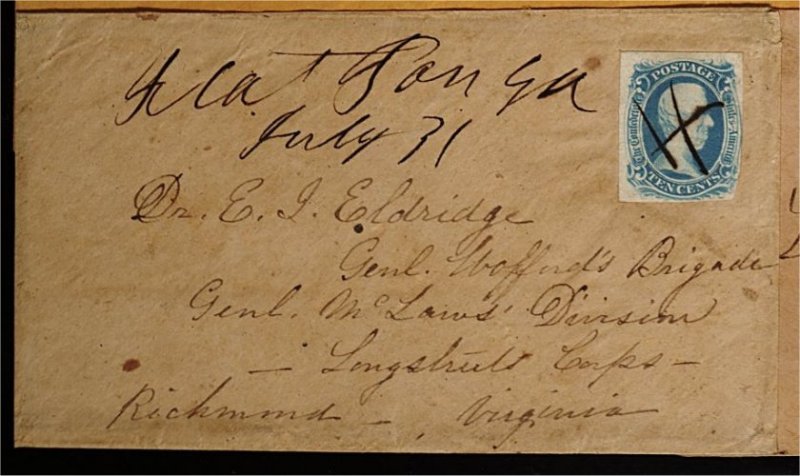 Flat Pond Ga
July 31
POSTAGE
The Confederate States of America
TEN CENTS
Dr. E. J. Eldridge
Genl. Wofford's Brigade
Genl. McLaws' Division
— Longstreets Corps —
Richmond — Virginia